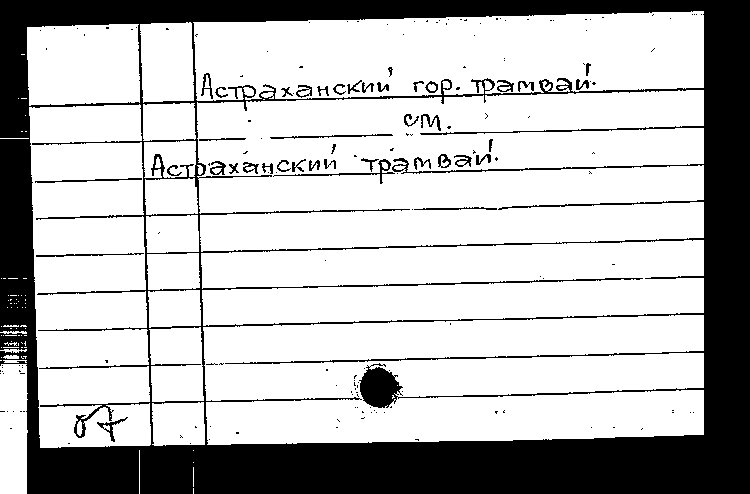 Астраханский гор. трамвай.
см.
Астраханский трамвай.